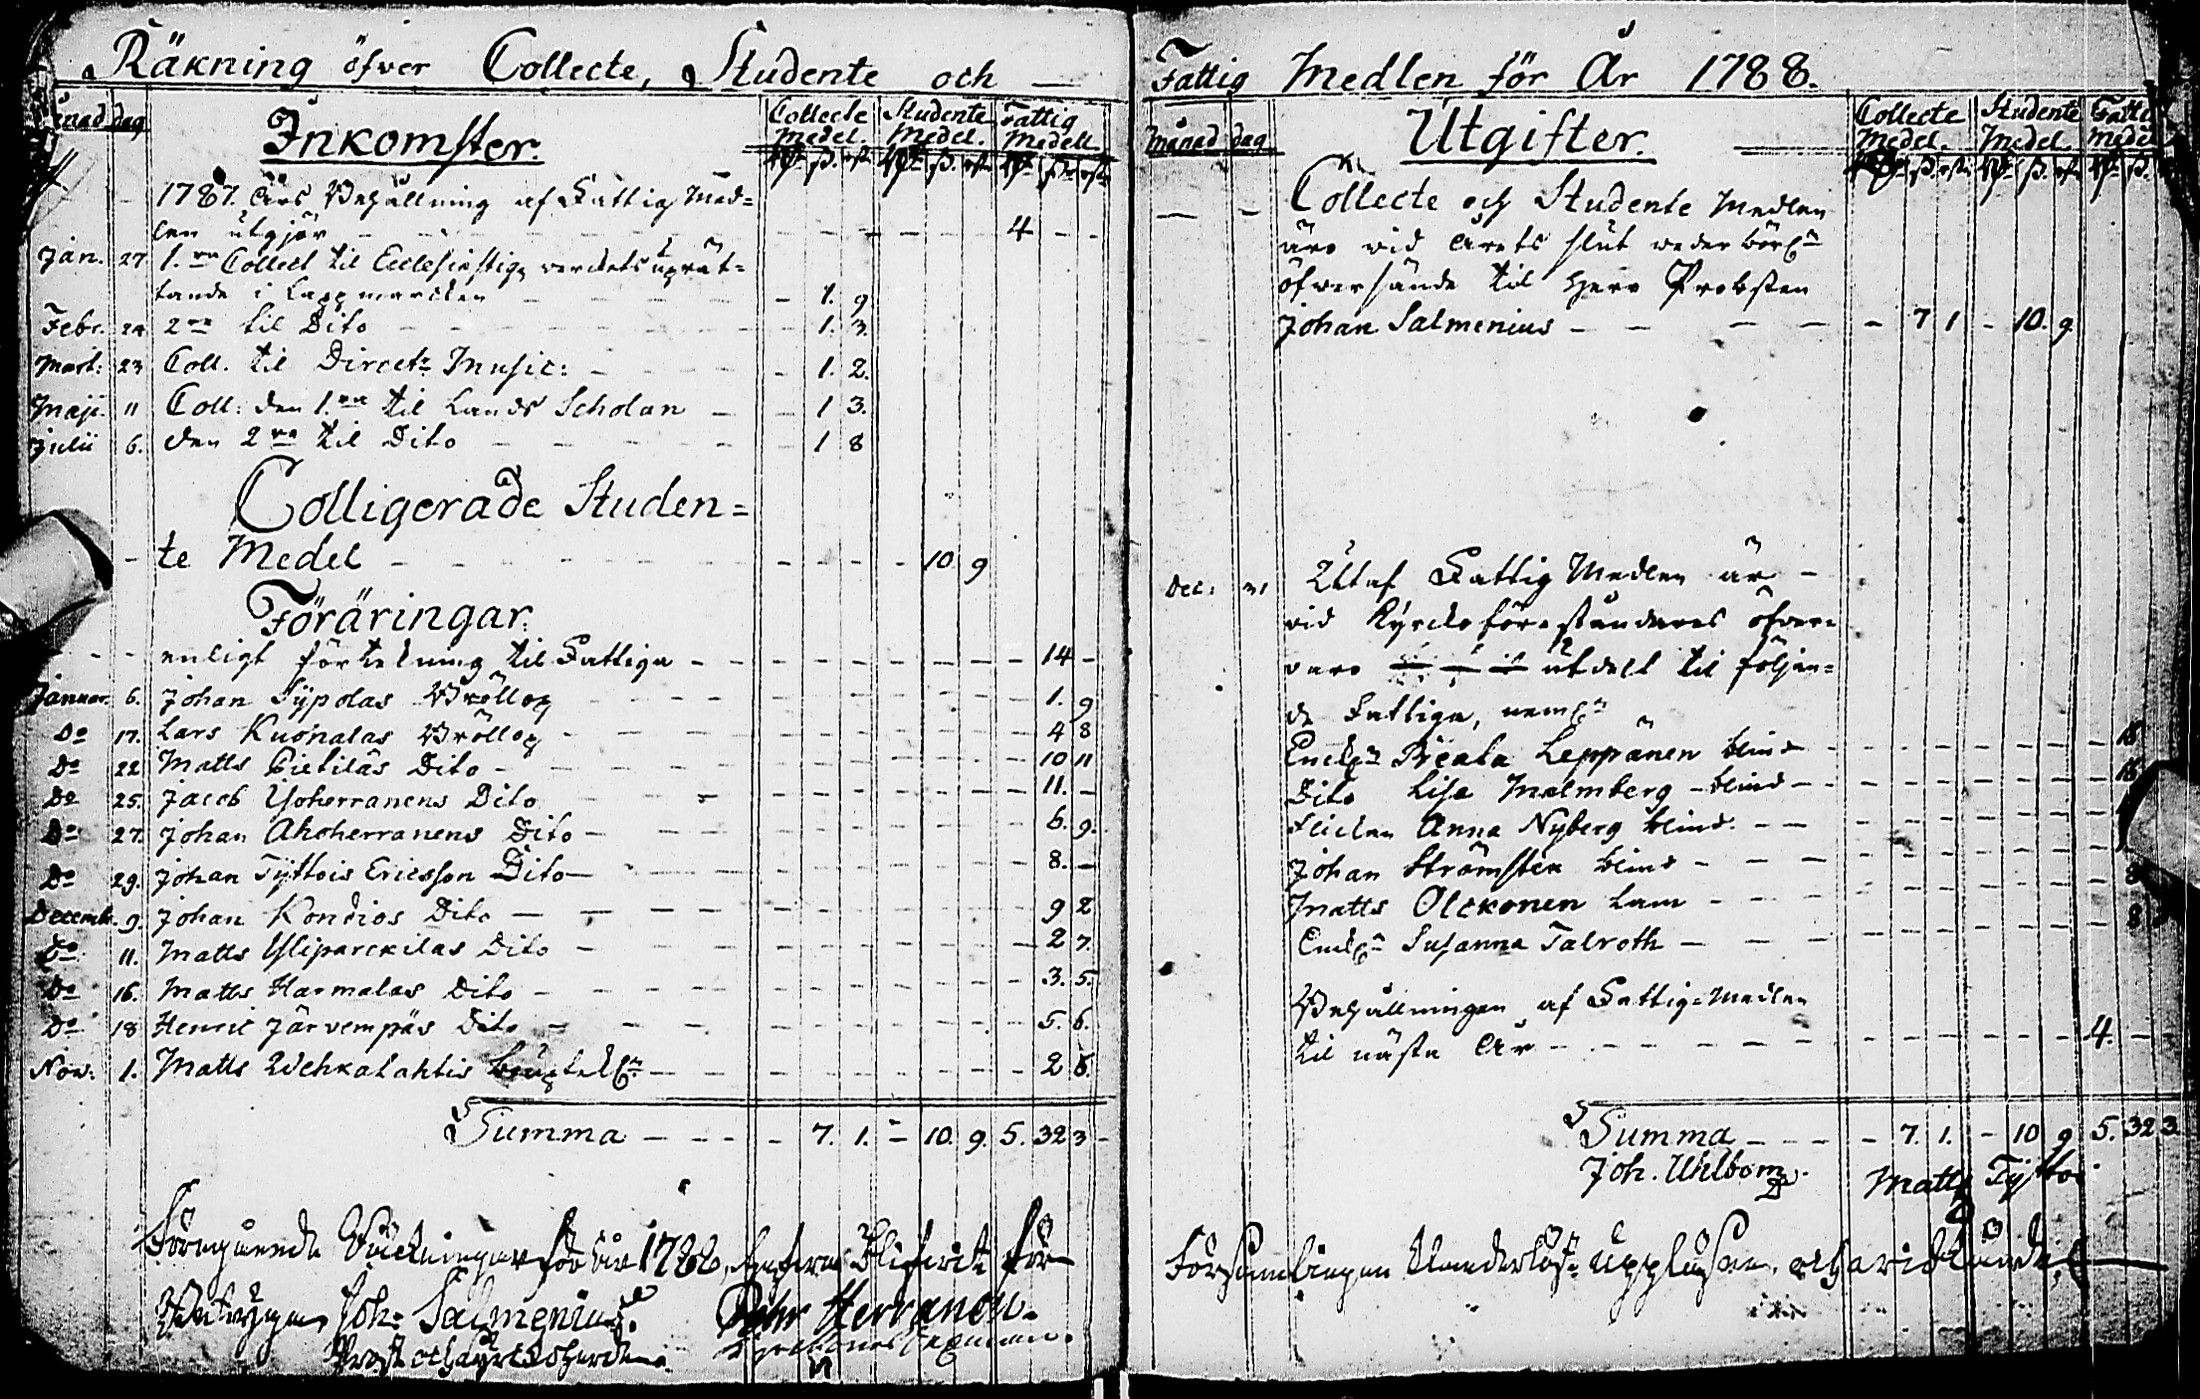 Räkning öfver Collecte, Studente och — Fattig Medlen för År 1788.
Månad dag Inkomster. Collecte Medel. Studente Medel. Fattig Medell
1787. Års Behållning af Fattig Med=
len utgjör - - - 4 - -
Jan. 27 1.ra Collect til Ecclesiastiq verckets uprät=
tande i Lappmarcken - 1. 9
Febr. 24 2ra til Dito - 1. 3.
Mart: 23 Coll. til Direct: Music: - 1. 2.
Maji. 11 Coll: den 1.ra til Lands Scholan - 1 3.
Julii 6. den 2ra til Dito - 1 8
Colligerade Studen=
te Medel - 10 9
Föräringar.
enligt förtekning til Fattiga - 14 -
Januar. 6. Johan Sypolas Bröllop - 1. 9
Do 17. Lars Kuonalas Bröllop - 4 8
Do 22 Matts Pietiläs Dito - 10 11
Do 25. Jacob Yoherranens Dito - 11. -
Do 27. Johan Ahoherranens Dito - 6. 9.
Do 29. Johan Tyttois Ericsson Dito - 8. -
Decemb. 9. Johan Kondios Dito - 9 2
Do 11. Matts Yliparckilas Dito - 2 7.
Do 16. Matts Harmalas Dito - 3. 5.
Do 18 Henric Järvempäs Dito - 5. 6.
Nov: 1. Matts Wehkalahtis - 2 8.
Summa - 7. 1. - 10. 9. 5. 32 3
Föregående Räckningar för år 1788,
Joh: Salmenius. Pehr Herranen.
Månad dag Utgifter. Collecte Medel. Studente Medel. Fattig Medel
Collecte och Studente Medlen
äro vid Årets slut vederbörl:n
öfversände til Herr Probsten
Johan Salmenius - 7 1 - 10. 9
Dec: 31 Utaf Fattig Medlen är -
vid Kyrckoföreståndares öfver=
varo utdelt til följan=
de Fattiga, neml:n
Enck:n Beata Leppänen blind - 18
Dito Lisa Malmberg - blind - 16
Flickan Anna Nyberg blind. - -
Johan Strömsten blind - 8
Matts Olckonen lam - 8
Enck:n Susanna Talroth -
Behållningen af Fattig=Medlen
til nästa År - 4. - -
Summa - 7. 1. - 10 9 5. 32 3
Joh. Uhlbom. Matts Tytto
Församlingen